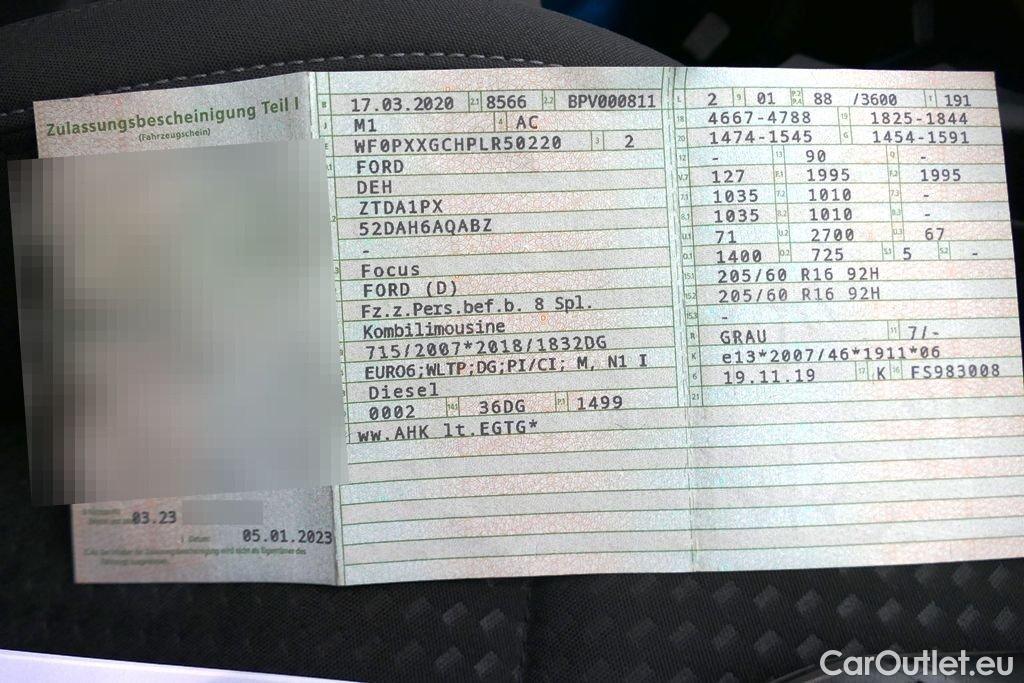 Zulassungsbescheinigung Teil I
(Fahrzeugschein)
03.23
Datum
05.01.2023
B 17.03.2020 2.1 8566 2.2 BPV000811
J M1 4 AC
E WF0PXXGCHPLR50220 3 2
FORD
DEH
ZTDA1PX
52DAH6AQABZ
-
Focus
FORD (D)
Fz.z.Pers.bef.b. 8 Spl.
Kombilimousine
715/2007*2018/1832DG
EURO6;WLTP;DG;PI/CI; M, N1 I
Diesel
0002 14.1 36DG P.1 1499
ww.AHK lt.EGTG*
L 2 9 01 P.2 P.4 88 /3600 T 191
18 4667-4788 19 1825-1844
20 1474-1545 G 1454-1591
12 - 13 90 Q -
V.7 127 F.1 1995 F.2 1995
7.1 1035 7.2 1010 7.3 -
8.1 1035 8.2 1010 8.3 -
U.1 71 U.2 2700 U.3 67
O.1 1400 O.2 725 S.1 5 S.2 -
15.1 205/60 R16 92H
15.2 205/60 R16 92H
15.3 -
R GRAU 11 7/-
K e13*2007/46*1911*06
6 19.11.19 17 K 16 FS983008
21
CarOutlet.eu